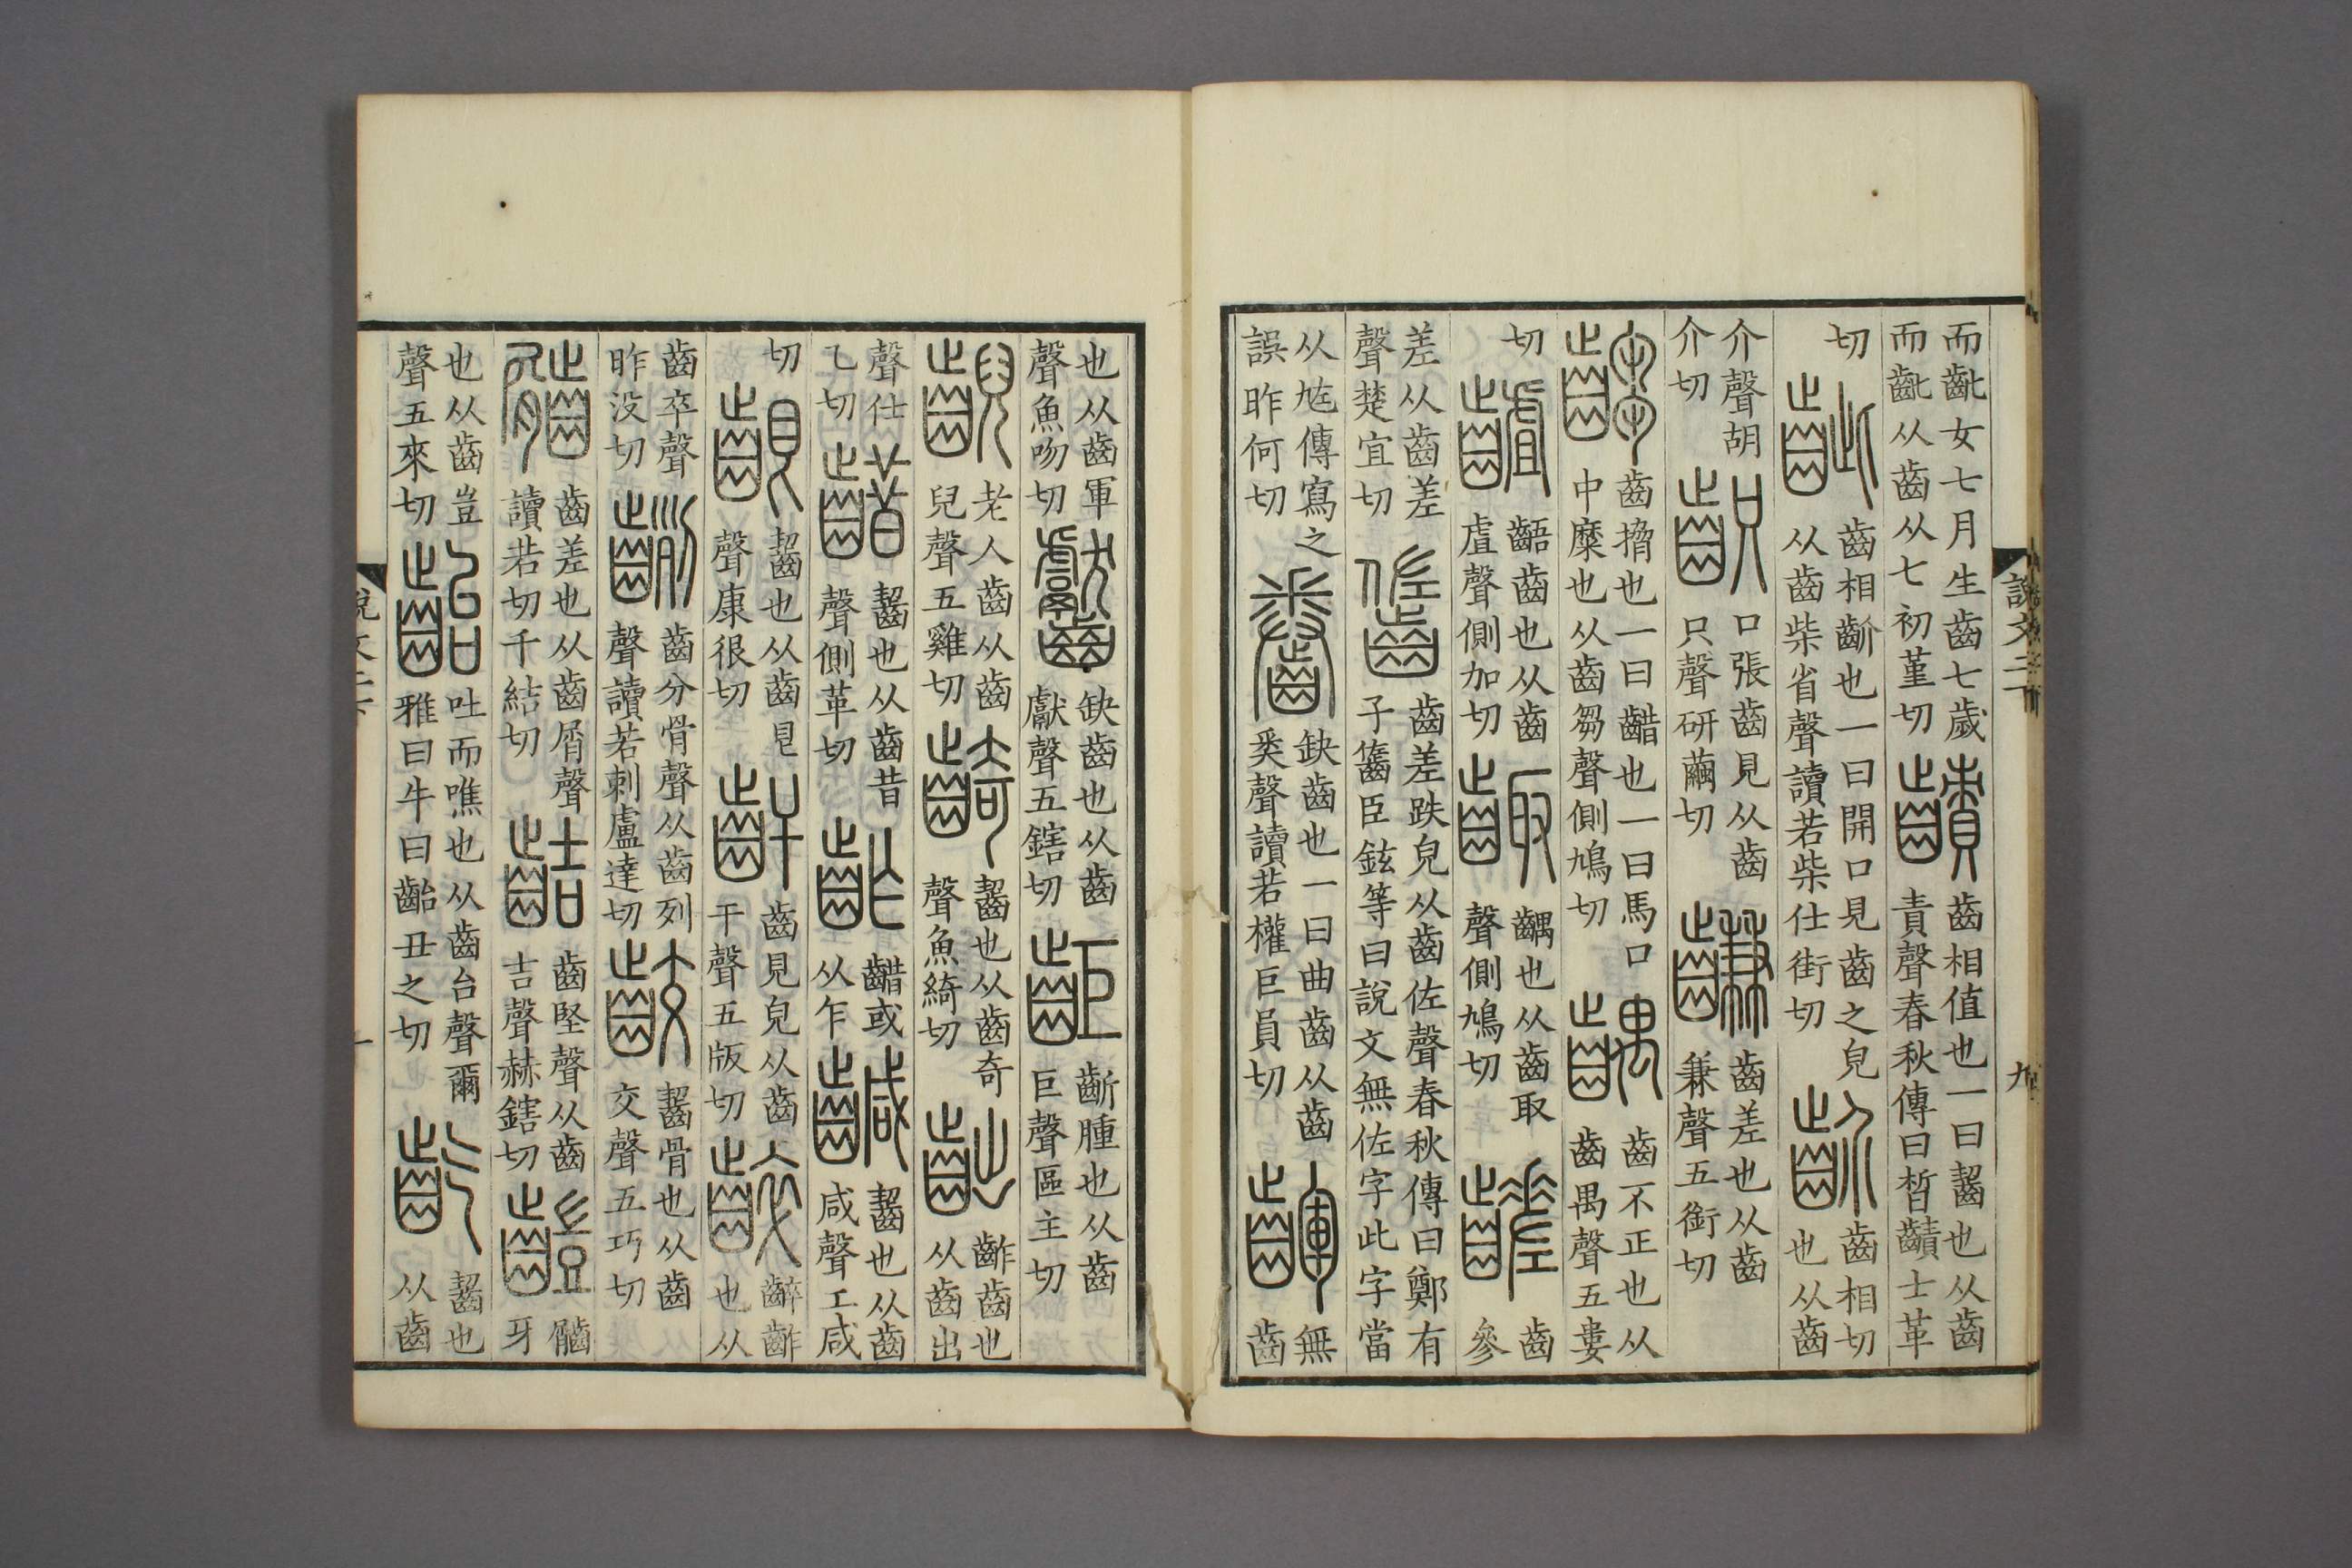 而齔女七月生齒七歲而齔从齒从七初堇切 䶦 齒相值也一曰齧也从齒責聲春秋傳曰晳䶦士革
切 齜 齒相齘也一曰開口見齒之皃从齒柴省聲讀若柴仕街切 齘 齒相切也从齒
介聲胡介切 齞 口張齒見从齒只聲研繭切 䶢 齒差也从齒兼聲五銜切
齺 齒搚也一曰齰也一曰馬口中糜也从齒芻聲側鳩切 齵 齒不正也从齒禺聲五婁
切 䶥 齬齒也从齒虘聲側加切 齱 齵也从齒取聲側鳩切 齹 齒參
差从齒差聲楚宜切 齒差跌皃从齒佐聲春秋傳曰鄭有子臣鉉等曰說文無佐字此字當
从傳寫之誤昨何切 齤 缺齒也一曰曲齒从齒𠔉聲讀若權巨員切 齳 無齒
說文二下
九
也从齒軍聲魚吻切 齾 缺齒也从齒獻聲五鎋切 齗腫也从齒巨聲區主切
齯 老人齒从齒兒聲五雞切 齮 齧也从齒奇聲魚綺切 齚齒也从齒出
聲仕乙切 齰 齧也从齒昔聲側革切 齚 齰或从乍 齧也从齒咸聲工咸
切 齦 齧也从齒皀聲康很切 齒見皃从齒干聲五版切 齚也从
齒卒聲昨没切 齒分骨聲从齒列聲讀若剌盧達切 齩 齧骨也从齒交聲五巧切
齒差也从齒屑聲讀若切千結切 齒堅聲从齒吉聲赫鎋切 牙
也从齒豈聲五來切 齝 吐而噍也从齒台聲爾雅曰牛曰齝丑之切 齕 齧也从齒
說文二下